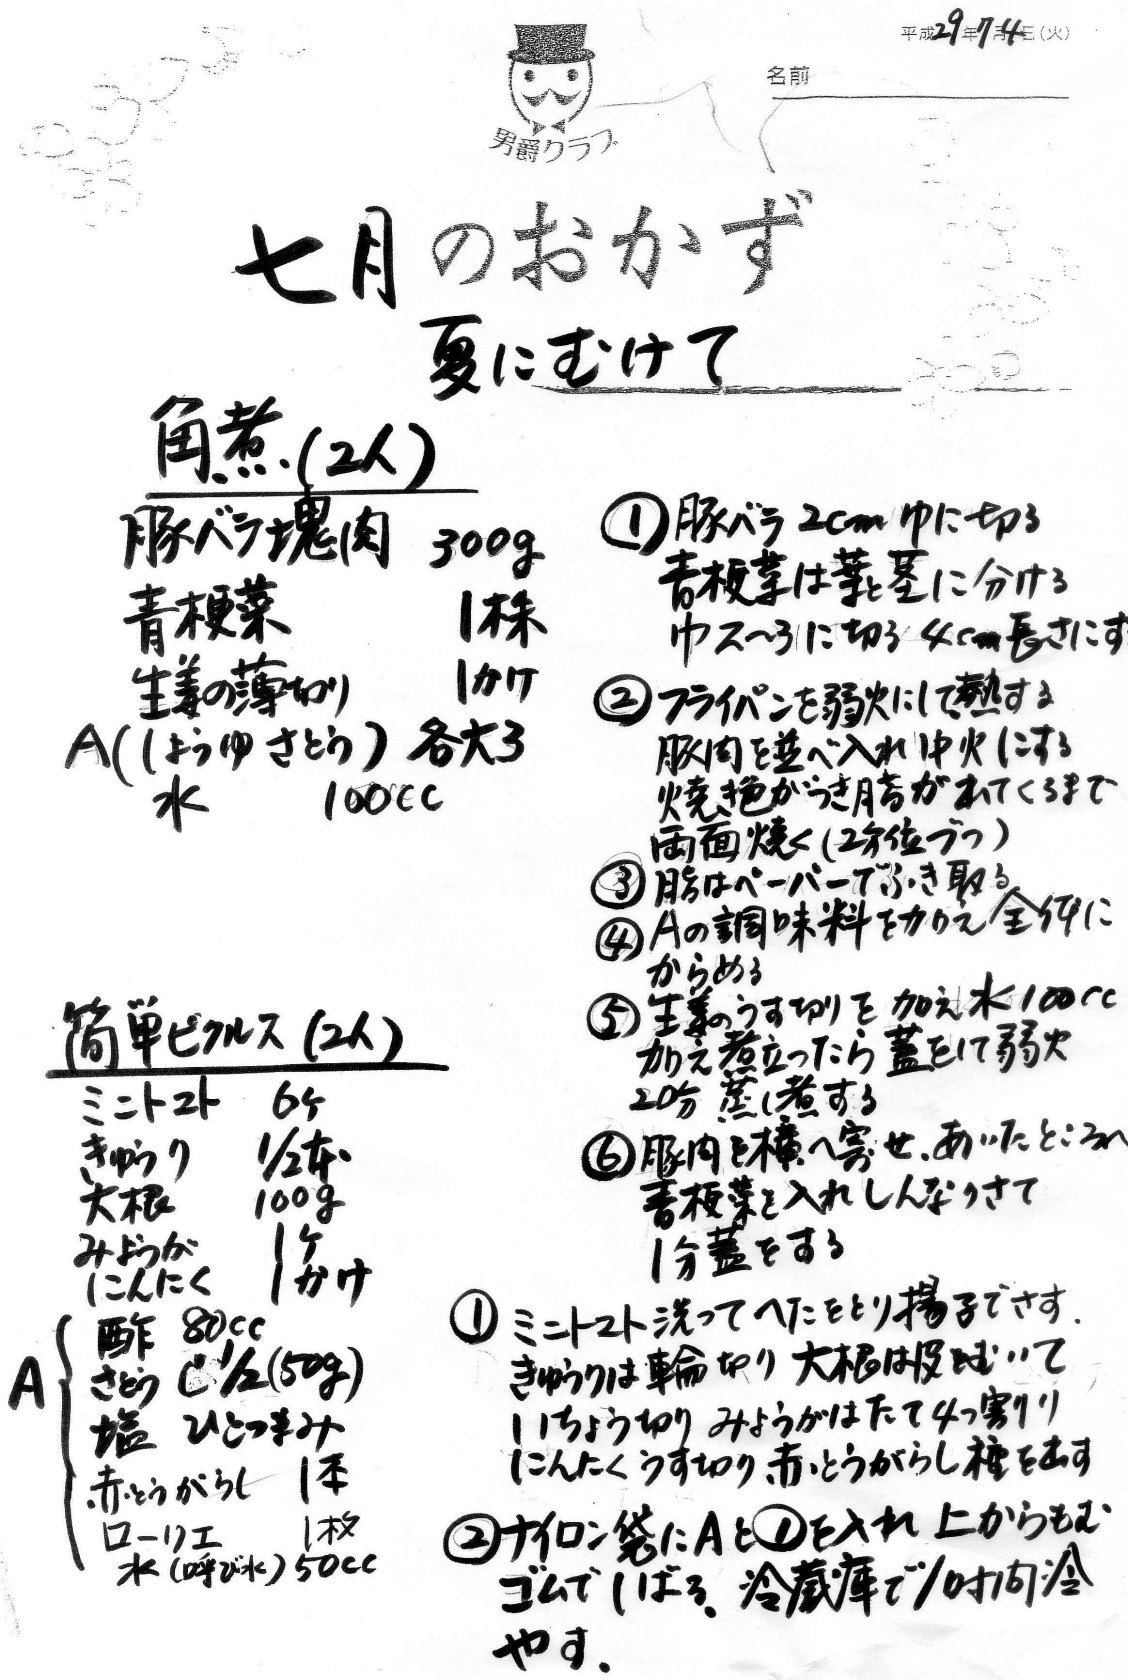 平成29年7月4日(火)
名前
男爵クラブ
七月のおかず
夏にむけて
角煮(2人)
豚バラ塊肉 300g
青梗菜 1株
生姜の薄切り 1かけ
A(しょうゆ さとう) 各大3
水 100cc
① 豚バラ 2cm巾に切る
青梗菜は葉と茎に分ける
巾2〜3に切る 4cm長さにす
② フライパンを弱火にして熱する
豚肉を並べ入れ中火にする
焼き色がつき脂が出てくるまで
両面焼く(2分位づつ)
③ 脂はペーパーでふき取る
④ Aの調味料を加え全体に
からめる
⑤ 生姜のうす切りを加え水100cc
加え煮立ったら蓋をして弱火
20分蒸し煮する
⑥ 豚肉を横へ寄せ、あいたところへ
青梗菜を入れしんなりさて
1分蓋をする
簡単ピクルス(2人)
ミニトマト 6ケ
きゅうり 1/2本
大根 100g
みょうが 1ケ
にんにく 1かけ
A
酢 80cc
さとう C1/2(50g)
塩 ひとつまみ
赤とうがらし 1本
ローリエ 1枚
水(呼び水) 50cc
① ミニトマト洗ってへたをとり楊子でさす.
きゅうりは輪切り 大根は皮をむいて
いちょう切り みょうがはたて4つ割り
にんにくうす切り 赤とうがらし種を出す
② ナイロン袋にAと①を入れ 上からもむ
ゴムでしばる、冷蔵庫で1時間冷
やす.